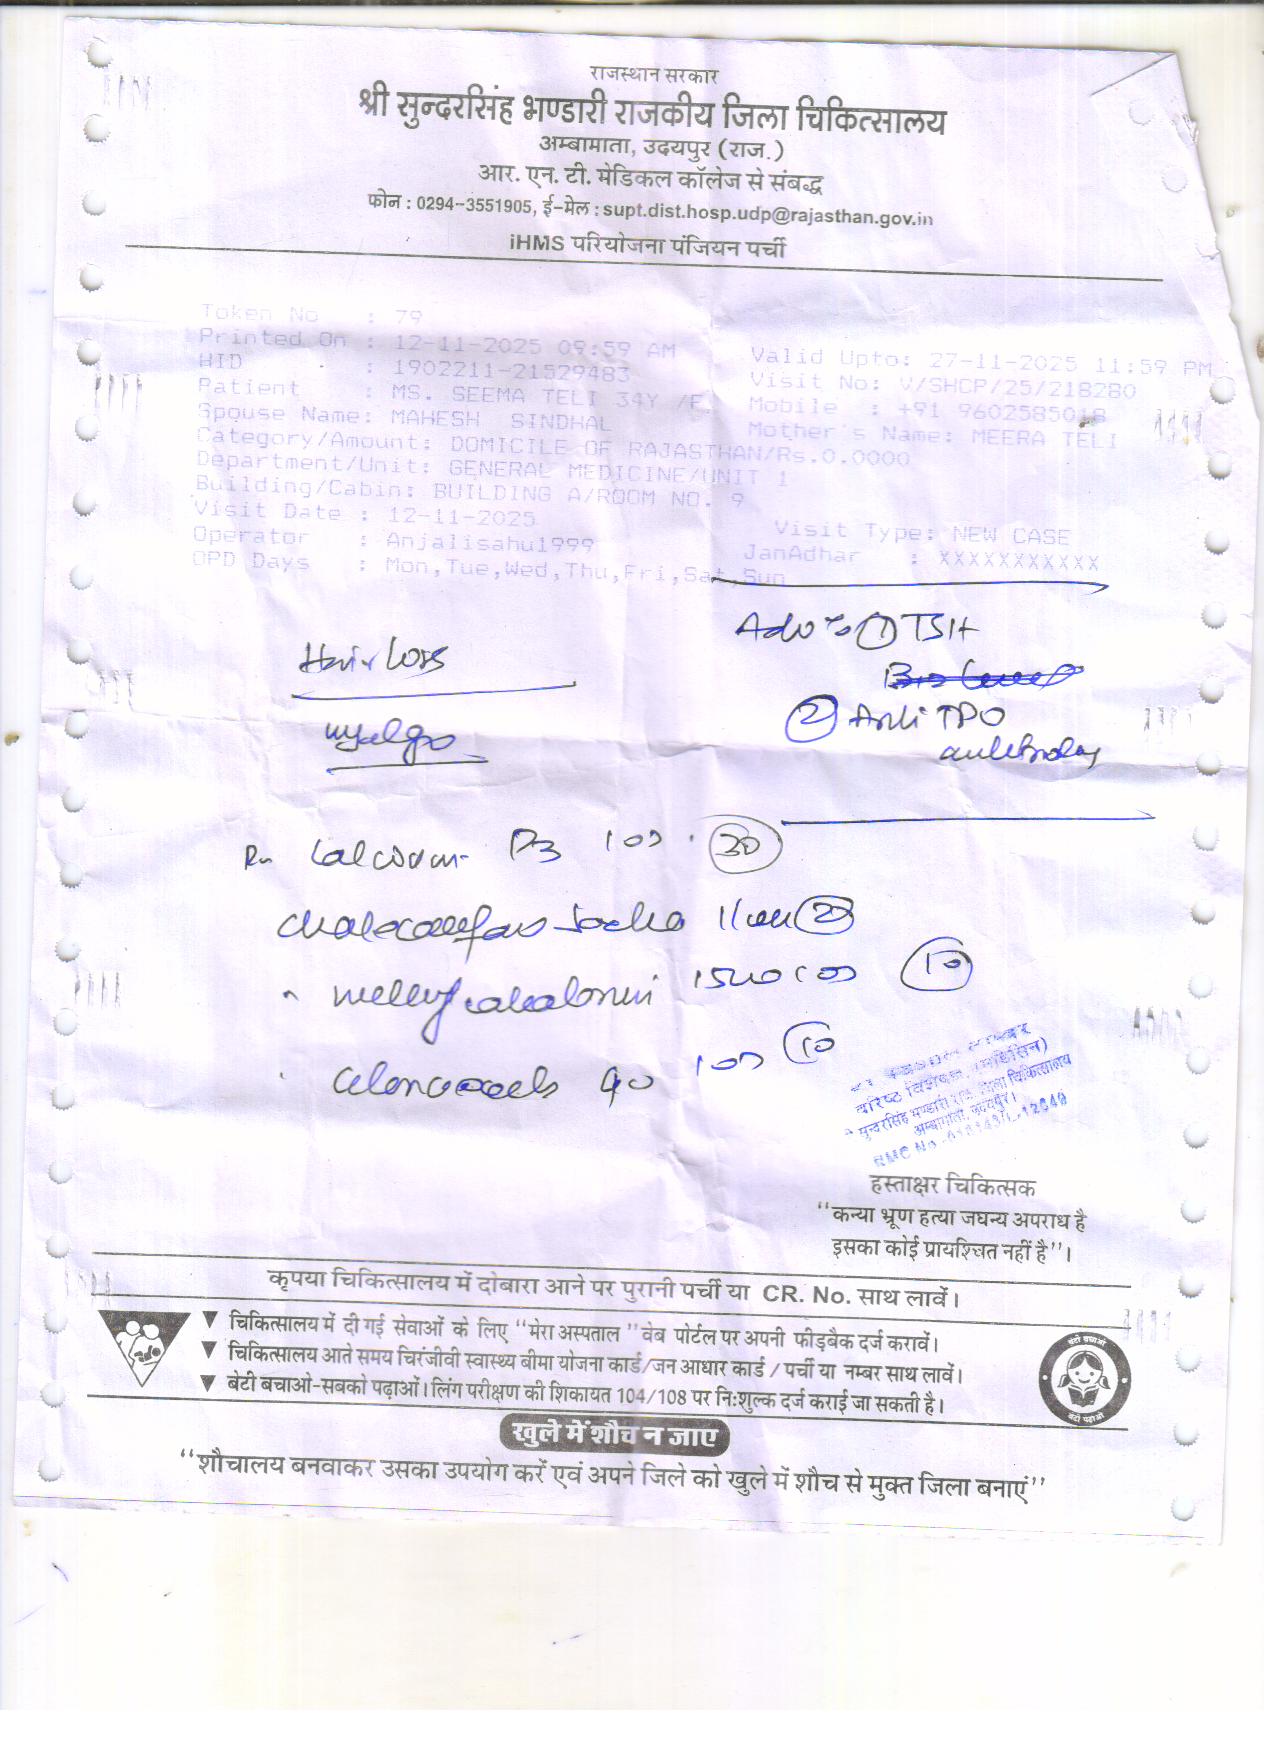 राजस्थान सरकार
श्री सुन्दरसिंह भण्डारी राजकीय जिला चिकित्सालय
अम्बामाता, उदयपुर (राज.)
आर. एन. टी. मेडिकल कॉलेज से संबद्ध
फोन : 0294-3551905, ई-मेल : supt.dist.hosp.udp@rajasthan.gov.in
iHMS परियोजना पंजियन पर्ची
Token No : 79
Printed On : 12-11-2025 09:59 AM Valid Upto: 27-11-2025 11:59 PM
HID : 1902211-21529483 Visit No: V/SHCP/25/218280
Patient : MS. SEEMA TELI 34Y /F Mobile : +91 9602585018
Spouse Name: MAHESH SINDHAL Mother's Name: MEERA TELI
Category/Amount: DOMICILE OF RAJASTHAN/Rs.0.0000
Department/Unit: GENERAL MEDICINE/UNIT 1
Building/Cabin: BUILDING A/ROOM NO. 9
Visit Date : 12-11-2025 Visit Type: NEW CASE
Operator : Anjalisahu1999 JanAdhar : XXXXXXXXXXX
OPD Days : Mon,Tue,Wed,Thu,Fri,Sat,Sun
Adv ① TSH
Hair loss
② Anti TPO
antibody
D3 30
10
1500 10
90 10
वरिष्ठ विशेषज्ञ
जिला चिकित्सालय
अम्बामाता, उदयपुर।
RMC No.
हस्ताक्षर चिकित्सक
"कन्या भ्रूण हत्या जघन्य अपराध है
इसका कोई प्रायश्चित नहीं है"।
कृपया चिकित्सालय में दोबारा आने पर पुरानी पर्ची या CR. No. साथ लावें।
▼ चिकित्सालय में दी गई सेवाओं के लिए "मेरा अस्पताल" वेब पोर्टल पर अपनी फीड़बैक दर्ज करावें।
▼ चिकित्सालय आते समय चिरंजीवी स्वास्थ्य बीमा योजना कार्ड/जन आधार कार्ड / पर्ची या नम्बर साथ लावें।
▼ बेटी बचाओ-सबको पढ़ाओं। लिंग परीक्षण की शिकायत 104/108 पर नि:शुल्क दर्ज कराई जा सकती है।
बेटी बचाओ
बेटी पढ़ाओ
खुले में शौच न जाए
"शौचालय बनवाकर उसका उपयोग करें एवं अपने जिले को खुले में शौच से मुक्त जिला बनाएं"